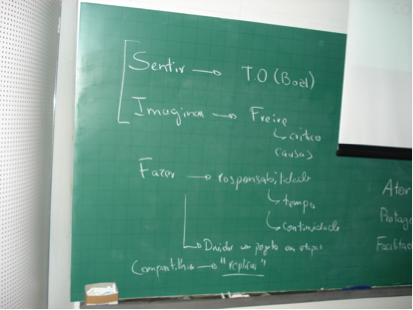 Sentir → T.O (Boal)
Imaginar → Freire
↳ crítico
causas
Fazer → responsabilidade
↳ tempo
↳ continuidade
↳ Dividir um projeto em etapas
Compartilhar → "réplicas"
Ator
Protag
Facilitad